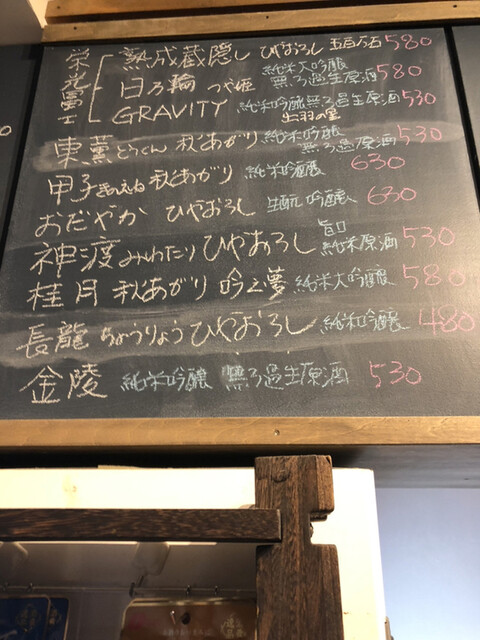 栄光冨士
熟成蔵隠し ひやおろし 五百万石 580
日乃輪 つや姫 純米大吟醸 無ろ過生原酒 580
GRAVITY 純米吟醸無ろ過生原酒 出羽の里 530
東薫とうくん 秋あがり 純米吟醸 無ろ過原酒 530
甲子きのえね 秋あがり 純米吟醸 630
おだやか ひやおろし 生酛吟醸 630
神渡みわたり ひやおろし 旨口 純米原酒 530
桂月 秋あがり 吟之夢 純米大吟醸 580
長龍 ちょうりょう ひやおろし 純米吟醸 480
金陵 純米吟醸 無ろ過生原酒 530